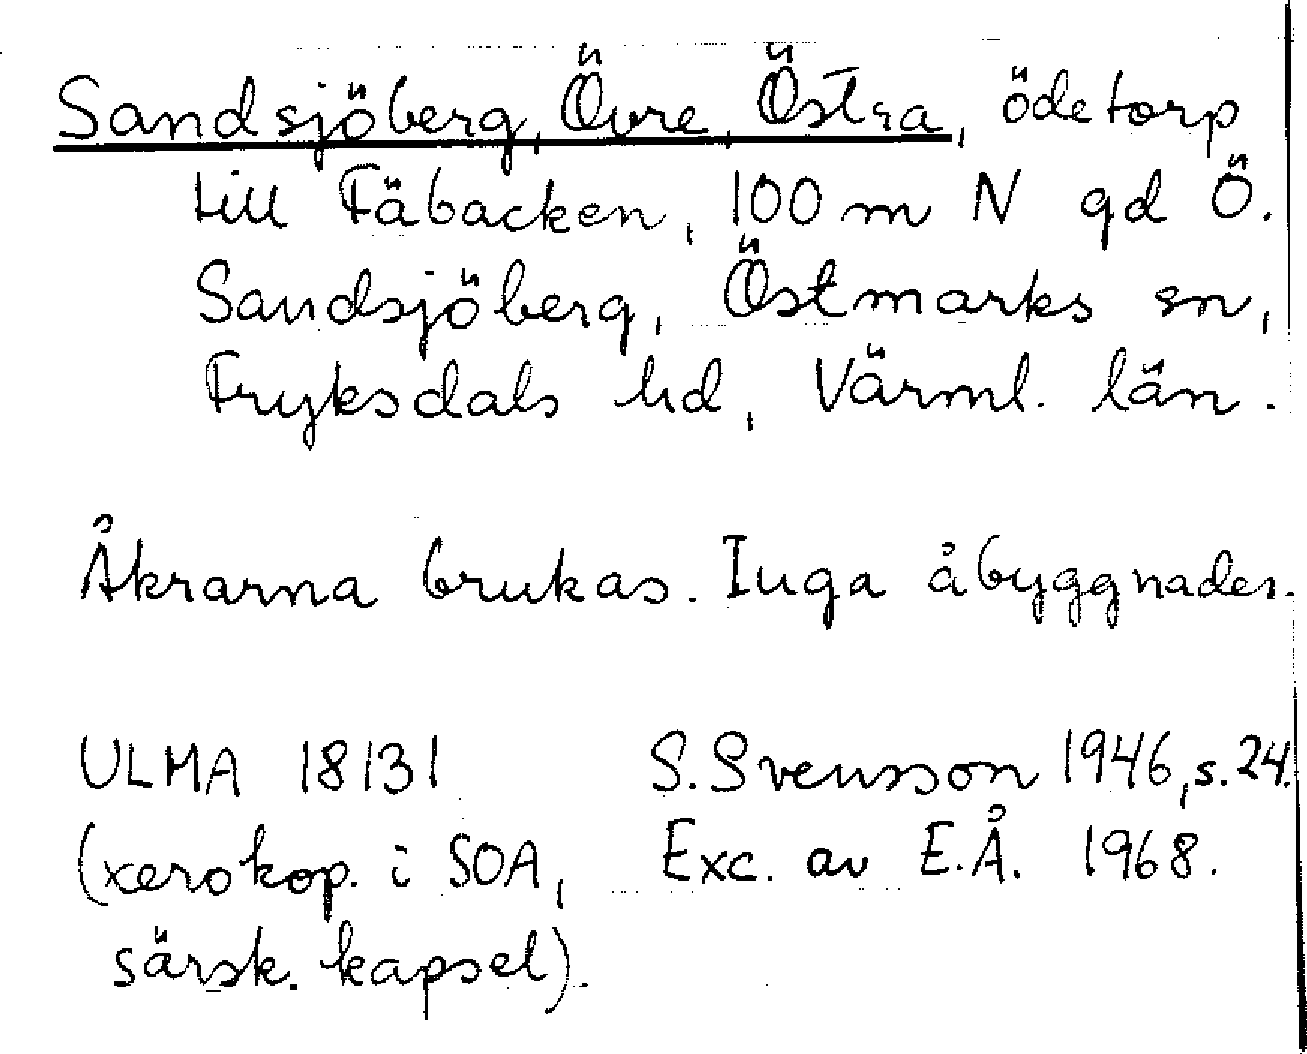 Sandsjöberg, Övre, Östra, ödetorp
till Fäbacken, 100 m N gd Ö.
Sandsjöberg, Östmarks sn,
Fryksdals hd, Värml. län.
Åkrarna brukas. Inga åbyggnader.
ULMA 18131 S. Svensson 1946, s. 24.
(xerokop. i SOA, Exc. av E.Å. 1968.
särsk. kapsel).